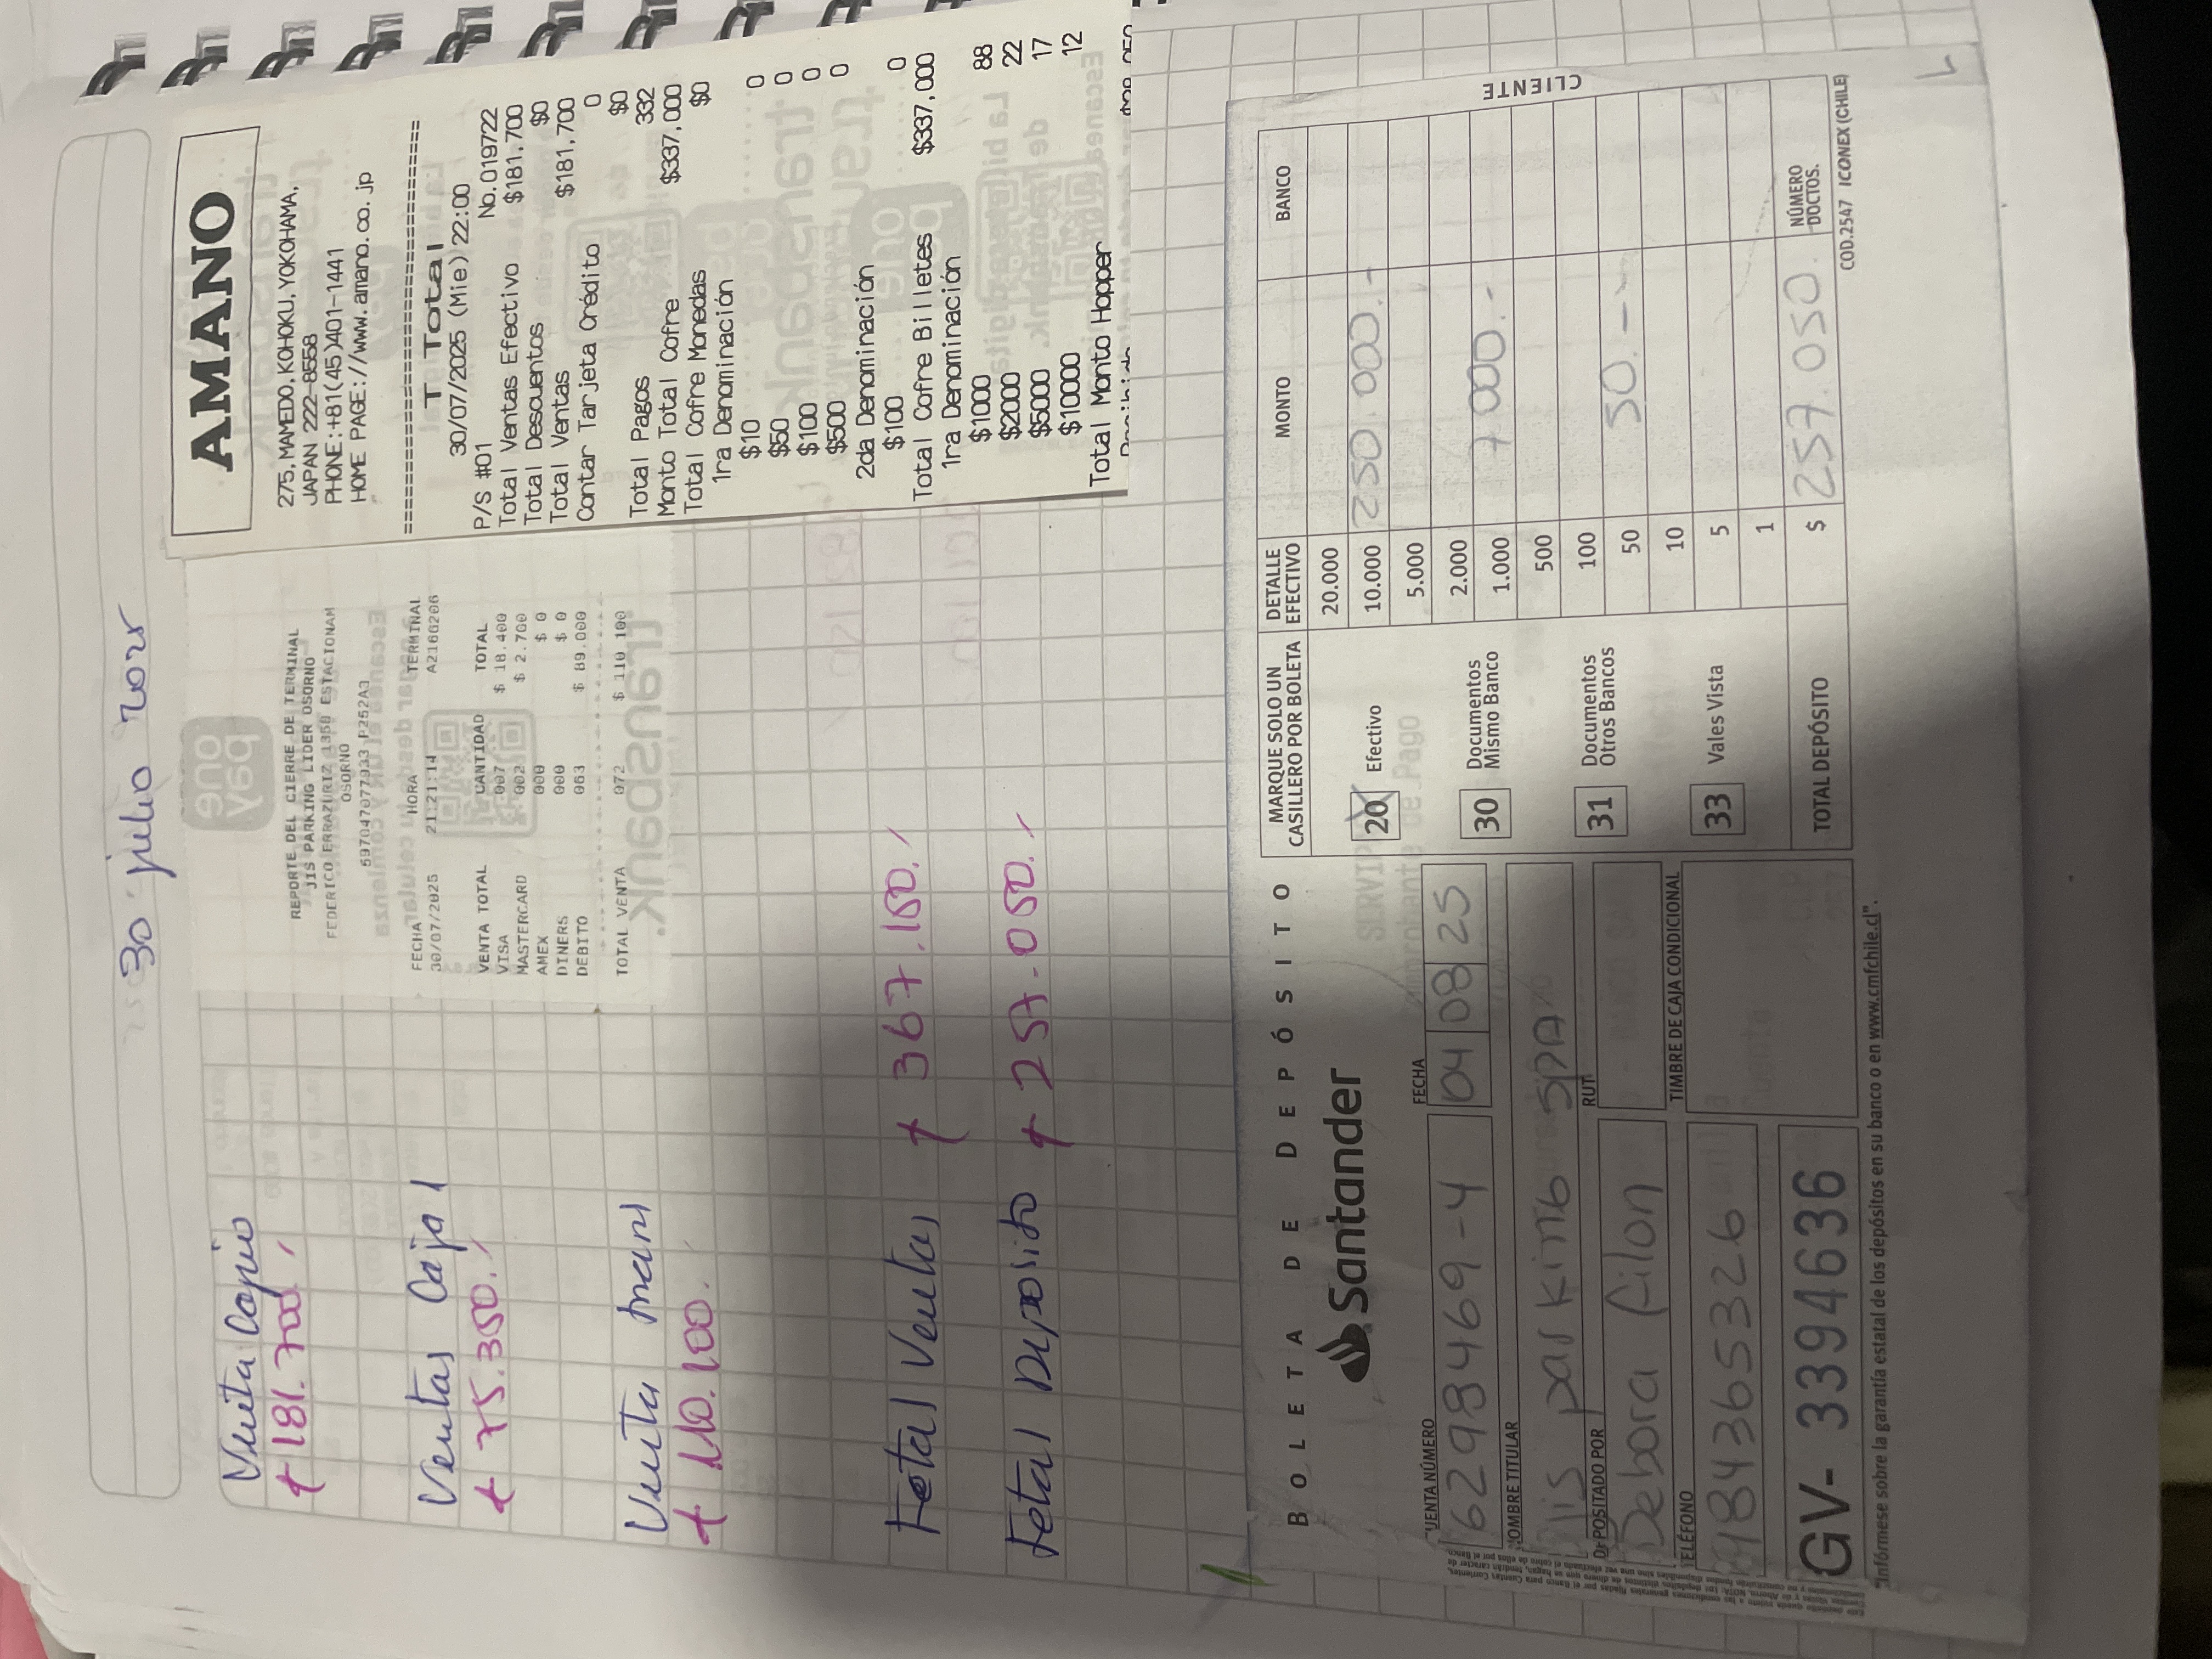 30 julio 2025
Venta Cajero
+ 181.700
Ventas Caja 1
+ 75.350.
Venta trans
+ 110.100.
Total Ventas + 367.150.
Total Deposito + 257.050.
pay
one
REPORTE DEL CIERRE DE TERMINAL
JIS PARKING LIDER OSORNO
FEDERICO ERRAZURIZ 1350 ESTACIONAM
OSORNO
597047077933 P252A3
FECHA HORA TERMINAL
30/07/2025 21:21:14 A2166206
VENTA TOTAL CANTIDAD TOTAL
VISA 007 $ 18.400
MASTERCARD 002 $ 2.700
AMEX 000 $ 0
DINERS 000 $ 0
DEBITO 063 $ 89.000
TOTAL VENTA 072 $ 110.100
transbank.
AMANO
275, MAMEDO, KOHOKU, YOKOHAMA,
JAPAN 222-8558
PHONE:+81(45)401-1441
HOME PAGE://www.amano.co.jp
T Total
30/07/2025 (Mie) 22:00
P/S #01 No.019722
Total Ventas Efectivo $181,700
Total Descuentos $0
Total Ventas $181,700
Contar Tarjeta Crédito 0
$0
Total Pagos 332
Monto Total Cofre $337,000
Total Cofre Monedas $0
1ra Denominación
$10 0
$50 0
$100 0
$500 0
2da Denominación
$100 0
Total Cofre Billetes $337,000
1ra Denominación
$1000 88
$2000 22
$5000 17
$10000 12
Total Monto Hopper
BOLETA DE DEPÓSITO
Santander
CUENTA NÚMERO FECHA
62983469-4 04 08 25
NOMBRE TITULAR
Jis parking SPA
DEPOSITADO POR RUT
Debora Filon
TELÉFONO TIMBRE DE CAJA CONDICIONAL
984365326
GV- 3394636
MARQUE SOLO UN CASILLERO POR BOLETA
20 Efectivo
30 Documentos Mismo Banco
31 Documentos Otros Bancos
33 Vales Vista
TOTAL DEPÓSITO
DETALLE EFECTIVO MONTO BANCO
20.000
10.000 250.000.-
5.000
2.000
1.000 7000.-
500
100
50 50.-
10
5
1
$ 257.050. NÚMERO DOCTOS.
CLIENTE
"Infórmese sobre la garantía estatal de los depósitos en su banco o en www.cmfchile.cl".
COD.2547 ICONEX (CHILE)